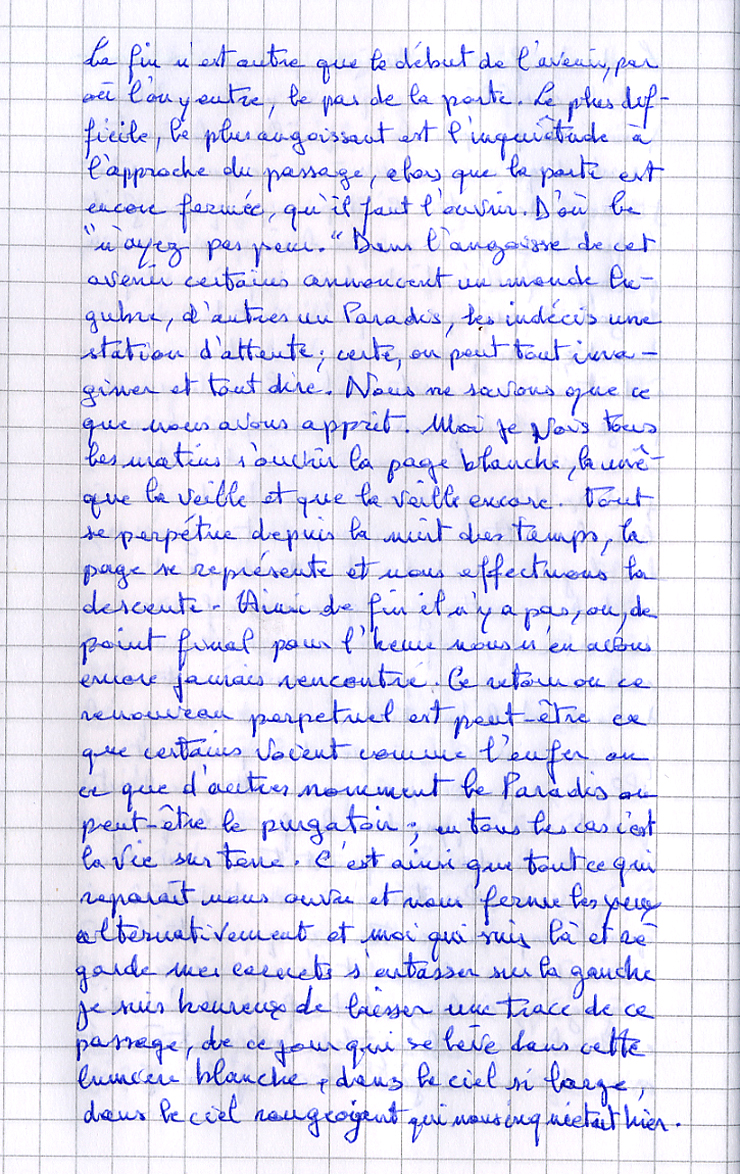 La fin n'est autre que le début de l'avenir, par
où l'on y entre, le pas de la porte. Le plus dif-
ficile, le plus angoissant est l'inquiétude à
l'approche du passage, alors que la porte est
encore fermée, qu'il faut l'ouvrir. D'où le
"n'ayez pas peur." Dans l'angoisse de cet
avenir certains annoncent un monde lu-
gubre, d'autres un Paradis, les indécis une
station d'attente; certe, on peut tout ima-
giner et tout dire. Nous ne savons que ce
que nous avons apprit. Moi je vois tous
les matins s'ouvrir la page blanche, la mê-
que la veille et que la veille encore. Tout
se perpétue depuis la nuit des temps, la
page se représente et nous effectuons la
descente. Ainsi de fin il n'y a pas, ou, de
point final pour l'heure nous n'en avons
encore jamais rencontré. Ce retour ou ce
renouveau perpetuel est peut-être ce
que certains voient comme l'enfer ou
ce que d'autres nomment le Paradis ou
peut-être le purgatoir; en tous les cas c'est
la vie sur terre. C'est ainsi que tout ce qui
reparaît nous ouvre et nous ferme les yeux
alternativement et moi qui suis là et re-
garde mes carnets s'entasser sur la gauche
je suis heureux de laisser une trace de ce
passage, de ce jour qui se lève dans cette
lumière blanche, dans le ciel si large,
dans le ciel rougeoyent qui nous inquiètait hier.